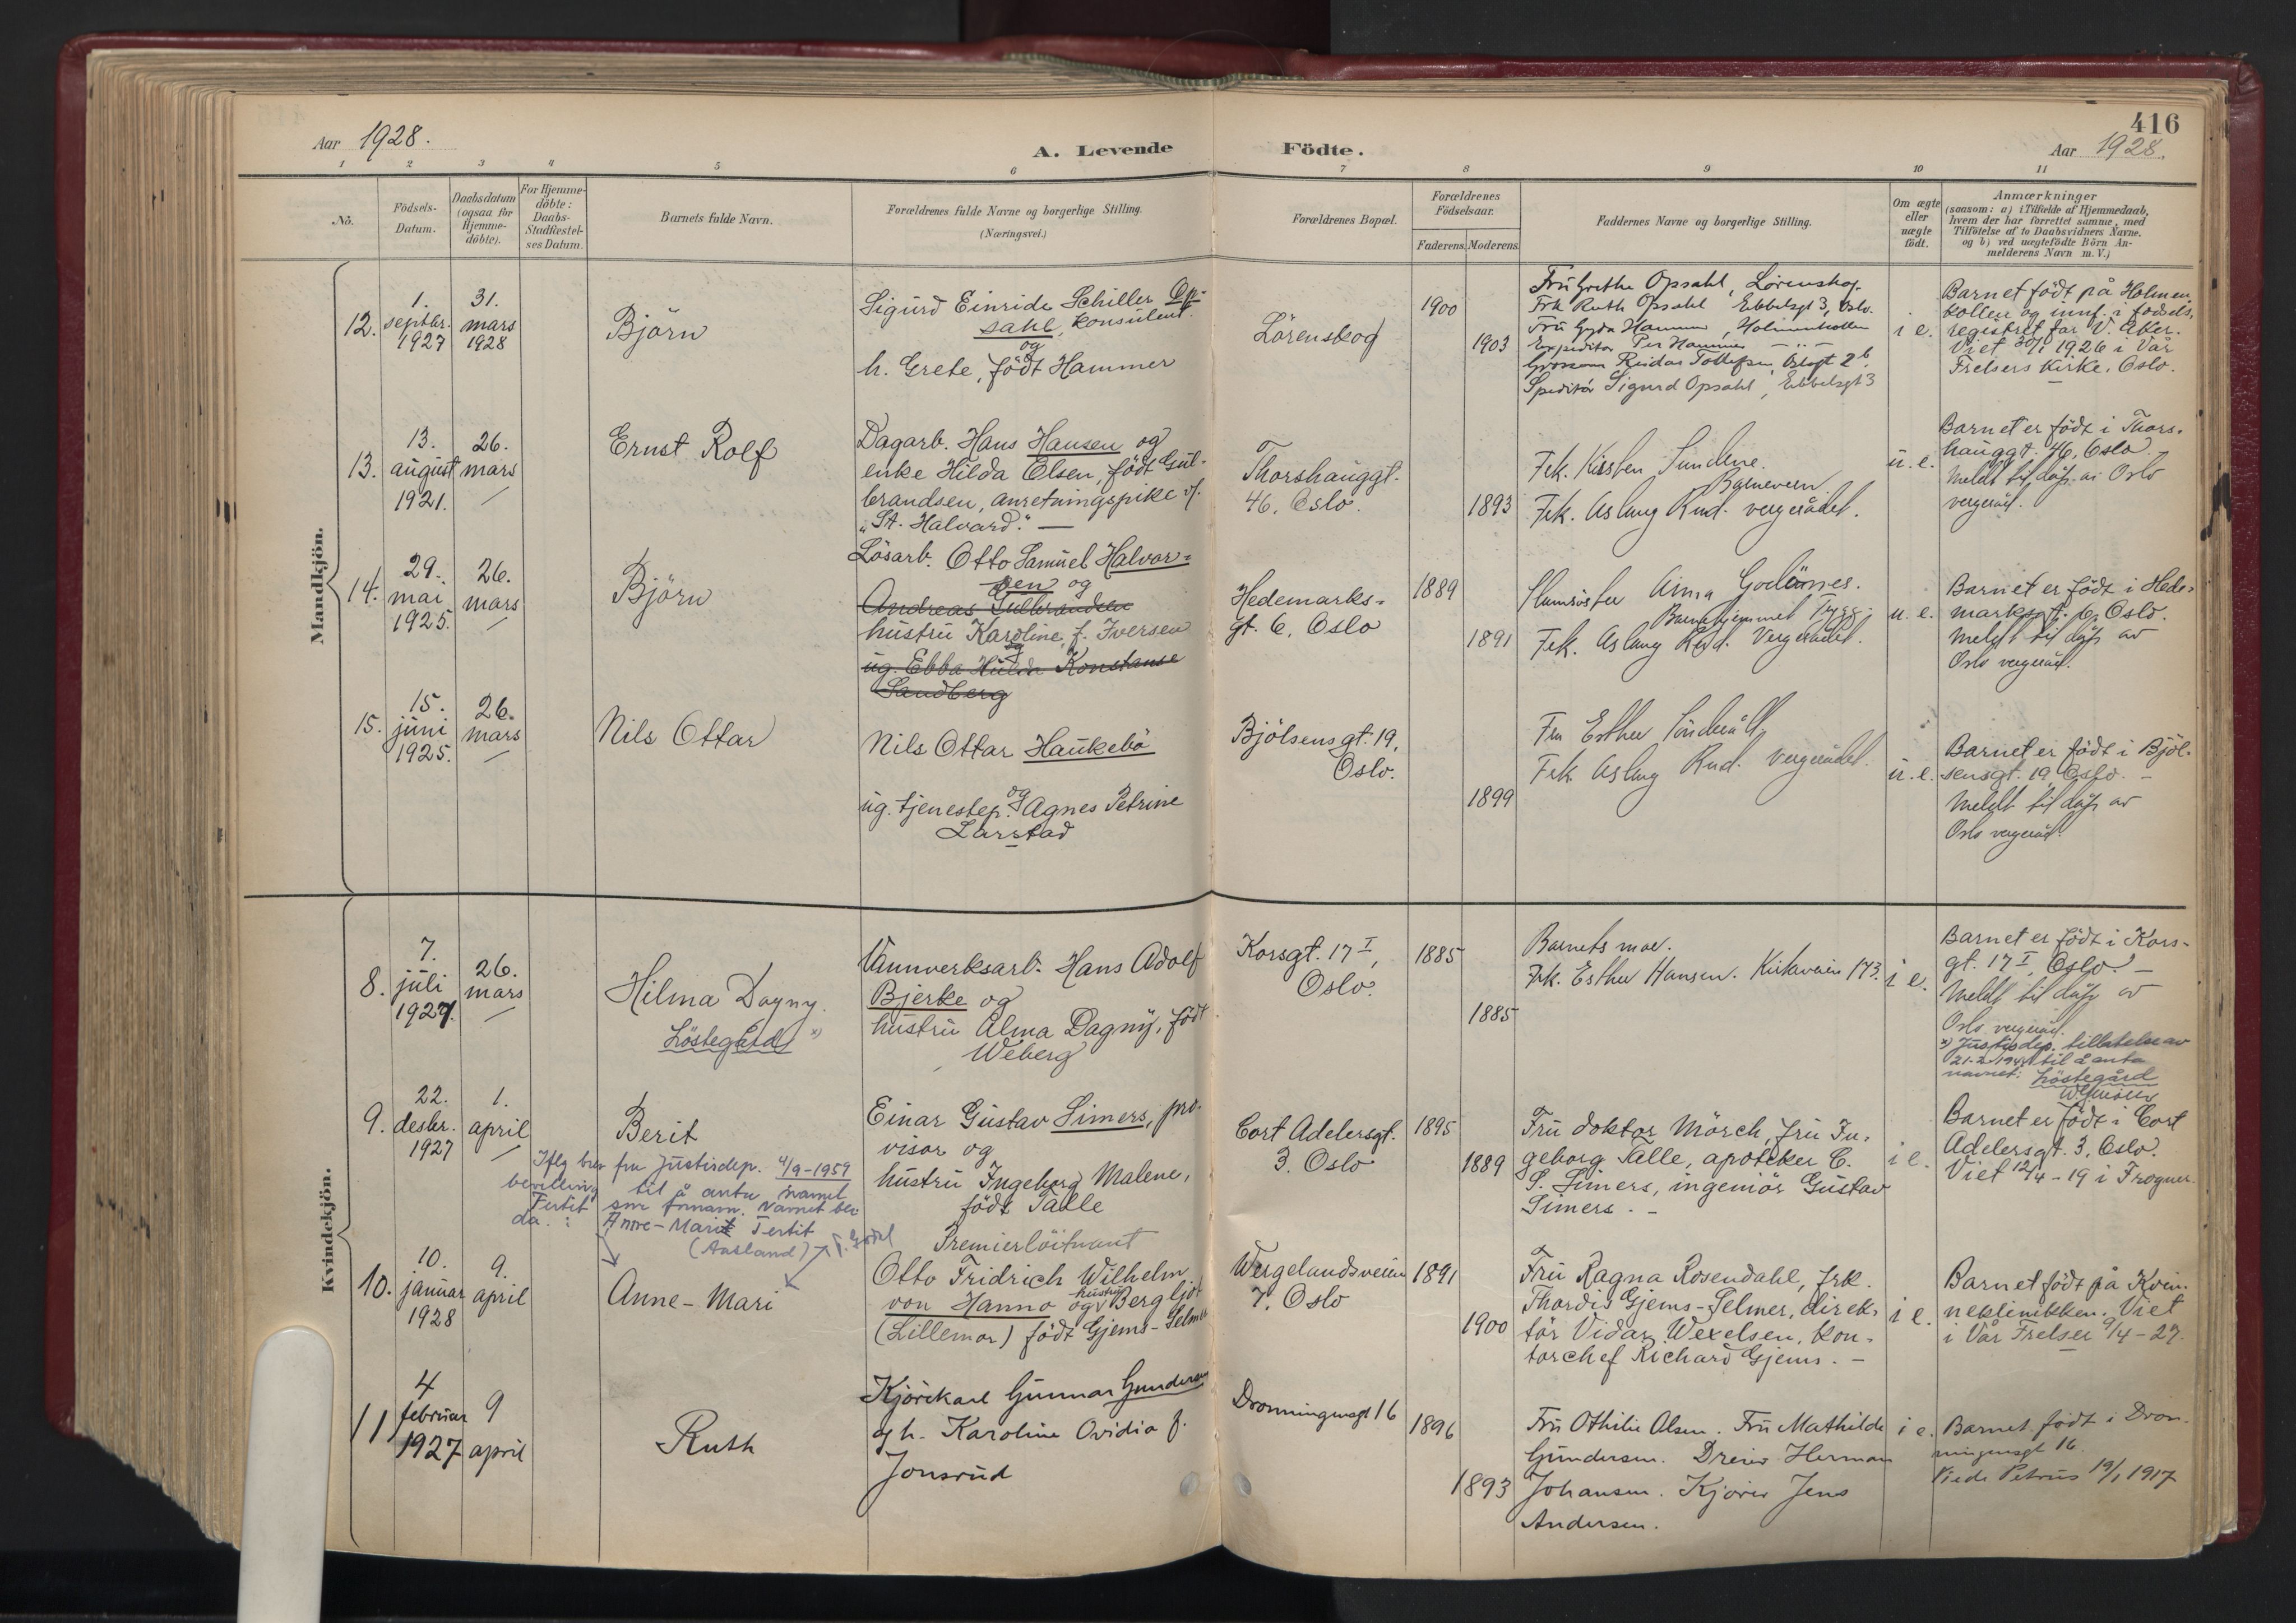 416
Aar 1928.
A. Levende Födte.
Aar 1928.
1 2 3 4 5 6 7 8 9 10 11
No.
Födsels-
Datum.
Daabsdatum
(ogsaa for
Hjemme-
döbte).
For Hjemme-
döbte:
Daabs-
Stadfæstel-
ses Datum.
Barnets fulde Navn.
Forældrenes fulde Navne og borgerlige Stilling.
(Næringsvei.)
Forældrenes Bopæl.
Forældrenes
Födselsaar.
Faderens. Moderens.
Faddernes Navne og borgerlige Stilling.
Om ægte
eller
uægte
födt.
Anmærkninger
(saasom: a) i Tilfælde af Hjemmedaab,
hvem der har forrettet samme, med
Tilföielse af to Daabsvidners Navne.
og b) ved uægtefödte Börn An-
melderens Navn m. V.)
Mandkjön.
12.
1.
septbr.
1927
31.
mars
1928
Björn
Sigurd Einride Schiller Op-
sahl, konsulent.
og
h. Grete, født Hammer
Lörenskog
1900
1903
Fru Grethe Opsahl, Lørenskog.
Frk Ruth Opsahl Ebbelsgt 3, Oslo.
Fru Gyda Hammer, Holmenkollen
Expeditør Per Hammer — " —
Grosserer Reidar Tollefsen, Oslogt 2b.
Speditør Sigurd Opsahl, Ebbelsgt 3
i e.
Barnet födt på Holmen-
kollen og innf. i fødsels-
registret for V. Aker.
Viet 30/1 1926 i Vår
Frelsers Kirke, Oslo.
13.
13.
august
1921.
26.
mars
Ernst Rolf
Dagarb. Hans Hansen og
enke Hilda Olsen, født Gul-
brandsen, anretningspike v/.
"St. Halvard." —
Thorshauggt.
46, Oslo.
1893
Frk. Kirsten Sundene.
Barnevern
Frk. Aslaug Rud. vergerådet.
u. e.
Barnet er födt i Thors-
hauggt. 46, Oslo.
Meldt til dåp av Oslo
vergeråd.
14.
29.
mai
1925.
26.
mars
Björn
Lösarb. Otto Samuel Halvor-
sen og
Andreas Gulbrandsen
hustru Karoline, f. Iversen
og
ug. Ebba Hulda Konstanse
Sandberg
Hedemarks-
gt. 6, Oslo
1889
1891
Slumsöster Anna
Barnehjemmet Trygg.
Frk. Aslaug Rud. Vergerådet.
u. e.
Barnet er födt i Hede-
marksgt. 6, Oslo.
Meldt til dåp av
Oslo vergeråd.
15.
15.
juni
1925.
26.
mars
Nils Ottar
Nils Ottar Haukebö
og
ug. tjenestep. Agnes Petrine
Larstad
Bjölsensgt. 19,
Oslo.
1899
Fru Esther
Frk Aslaug Rud. Vergerådet.
u. e.
Barnet er födt i Bjöl-
sensgt. 19 Oslo. —
Meldt til dåp av
Oslo vergeråd.
Kvindekjön.
8.
7.
juli
1927.
26.
mars
Hilma Dagny.
Löstegård x)
Vannverksarb. Hans Adolf
Bjerke og
hustru Alma Dagny, født
Weberg
Korsgt. 17 I,
Oslo.
1885
1885
Barnets mor.
Frk. Esther Hansen. Kirkeveien 173.
i e.
Barnet er födt i Kors-
gt. 17 I, Oslo. —
Meldt til dåp av
Oslo vergeråd.
x) Justisdep. tillatelse av
til å anta
navnet: Löstegård
9.
22.
desbr.
1927
1.
april
Berit
Einar Gustav Simers, pro-
visor og
hustru Ingeborg Malene,
född Talle
Cort Adelersgt.
3. Oslo
1895
1889
Fru doktor Mörch, fru In-
geborg Talle, apoteker C.
S. Simers, ingeniör Gustav
Simers. —
i e.
Barnet er födt i Cort
Adelersgt. 3, Oslo.
Viet 12/4 - 19 i Frogner.
Iflg brev fra Justisdep. 4/9-1959
bevilling til å anta navnet
Tertit som fornavn. Navnet blir
da: Anne-Marit Tertit
(Aasland)
10.
10.
januar
1928
9.
april
Anne-Mari
Premierlöitnant
Otto Fridrich Wilhelm
von Hanno og hustru Bergljot
(Lillemor) født Gjems-Selmer
Wergelandsveien
7, Oslo
1891
1900
Fru Ragna Rosendahl, frk.
Thordis Gjems-Selmer, direk-
tör Vidar Wexelsen, kon-
torchef Richard Gjems. —
i e.
Barnet födt på Kvin-
neklinikken. Viet
i Vår Frelser 9/4 - 27.
11
4
februar
1927
9
april
Ruth
Kjörekarl Gunnar Gundersen
og h. Karoline Ovidia f.
Jonsrud
Dronningensgt 16
1896
1893
Fru Othilie Olsen. Fru Mathilde
Gundersen. Dreier Herman
Johansen. Kjörer Jens
Andersen.
i e.
Barnet födt i Dron-
ningensgt 16.
Viede Petrus 19/1 1917